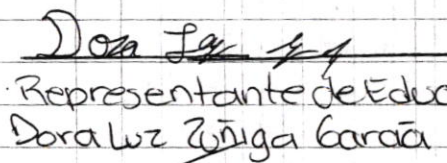 Dora Luz
Representante de Educ
Dora Luz Zuñiga Garcia